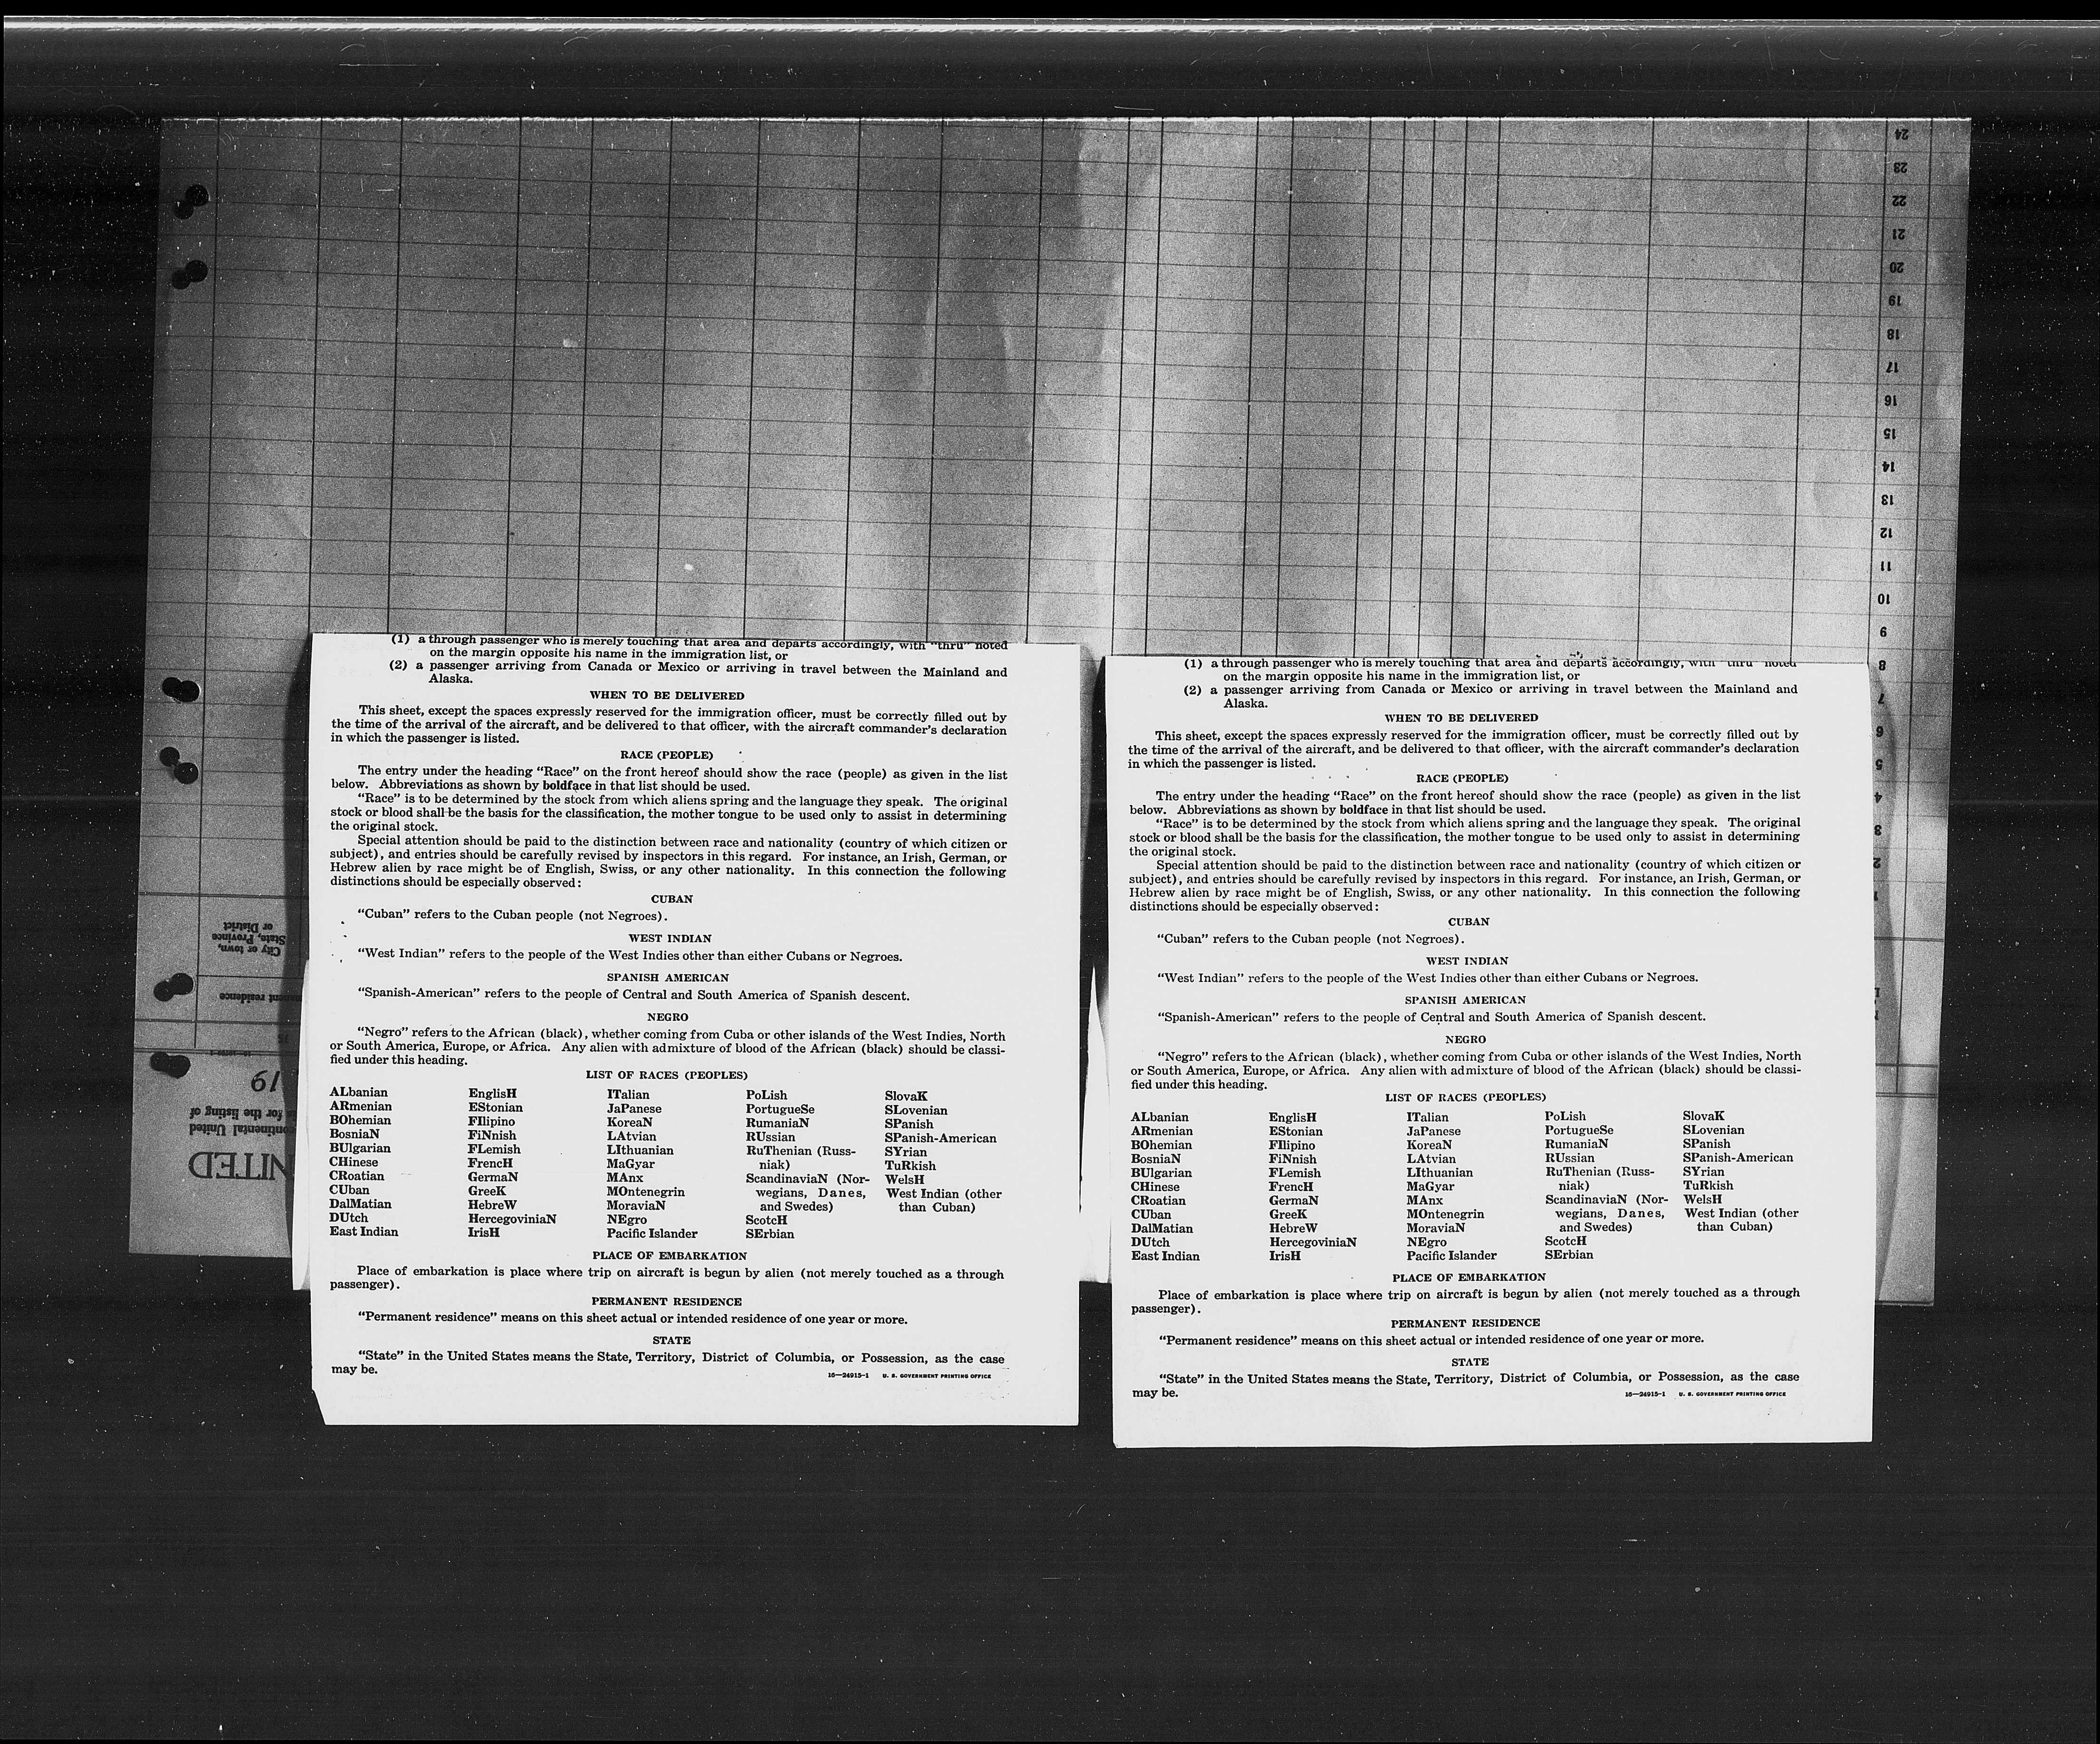 24
23
22
21
20
19
18
17
16
15
14
13
12
11
10
9
8
7
6
5
4
3
2
1
City or town,
State, Province
or District
residence
19
for the listing of
continental United
(1) a through passenger who is merely touching that area and departs accordingly, with "thru" noted
on the margin opposite his name in the immigration list, or
(2) a passenger arriving from Canada or Mexico or arriving in travel between the Mainland and
Alaska.
WHEN TO BE DELIVERED
This sheet, except the spaces expressly reserved for the immigration officer, must be correctly filled out by
the time of the arrival of the aircraft, and be delivered to that officer, with the aircraft commander's declaration
in which the passenger is listed.
RACE (PEOPLE)
The entry under the heading "Race" on the front hereof should show the race (people) as given in the list
below. Abbreviations as shown by boldface in that list should be used.
"Race" is to be determined by the stock from which aliens spring and the language they speak. The original
stock or blood shall be the basis for the classification, the mother tongue to be used only to assist in determining
the original stock.
Special attention should be paid to the distinction between race and nationality (country of which citizen or
subject), and entries should be carefully revised by inspectors in this regard. For instance, an Irish, German, or
Hebrew alien by race might be of English, Swiss, or any other nationality. In this connection the following
distinctions should be especially observed:
CUBAN
"Cuban" refers to the Cuban people (not Negroes).
WEST INDIAN
"West Indian" refers to the people of the West Indies other than either Cubans or Negroes.
SPANISH AMERICAN
"Spanish-American" refers to the people of Central and South America of Spanish descent.
NEGRO
"Negro" refers to the African (black), whether coming from Cuba or other islands of the West Indies, North
or South America, Europe, or Africa. Any alien with admixture of blood of the African (black) should be classi-
fied under this heading.
LIST OF RACES (PEOPLES)
ALbanian
ARmenian
BOhemian
BosniaN
BUlgarian
CHinese
CRoatian
CUban
DalMatian
DUtch
East Indian
EnglisH
EStonian
FIlipino
FiNnish
FLemish
FrencH
GermaN
GreeK
HebreW
HercegoviniaN
IrisH
ITalian
JaPanese
KoreaN
LAtvian
LIthuanian
MaGyar
MAnx
MOntenegrin
MoraviaN
NEgro
Pacific Islander
PoLish
PortugueSe
RumaniaN
RUssian
RuThenian (Russ-
niak)
ScandinaviaN (Nor-
wegians, Danes,
and Swedes)
ScotcH
SErbian
SlovaK
SLovenian
SPanish
SPanish-American
SYrian
TuRkish
WelsH
West Indian (other
than Cuban)
PLACE OF EMBARKATION
Place of embarkation is place where trip on aircraft is begun by alien (not merely touched as a through
passenger).
PERMANENT RESIDENCE
"Permanent residence" means on this sheet actual or intended residence of one year or more.
STATE
"State" in the United States means the State, Territory, District of Columbia, or Possession, as the case
may be.
16—24915-1 U. S. GOVERNMENT PRINTING OFFICE
(1) a through passenger who is merely touching that area and departs accordingly, with "thru" noted
on the margin opposite his name in the immigration list, or
(2) a passenger arriving from Canada or Mexico or arriving in travel between the Mainland and
Alaska.
WHEN TO BE DELIVERED
This sheet, except the spaces expressly reserved for the immigration officer, must be correctly filled out by
the time of the arrival of the aircraft, and be delivered to that officer, with the aircraft commander's declaration
in which the passenger is listed.
RACE (PEOPLE)
The entry under the heading "Race" on the front hereof should show the race (people) as given in the list
below. Abbreviations as shown by boldface in that list should be used.
"Race" is to be determined by the stock from which aliens spring and the language they speak. The original
stock or blood shall be the basis for the classification, the mother tongue to be used only to assist in determining
the original stock.
Special attention should be paid to the distinction between race and nationality (country of which citizen or
subject), and entries should be carefully revised by inspectors in this regard. For instance, an Irish, German, or
Hebrew alien by race might be of English, Swiss, or any other nationality. In this connection the following
distinctions should be especially observed:
CUBAN
"Cuban" refers to the Cuban people (not Negroes).
WEST INDIAN
"West Indian" refers to the people of the West Indies other than either Cubans or Negroes.
SPANISH AMERICAN
"Spanish-American" refers to the people of Central and South America of Spanish descent.
NEGRO
"Negro" refers to the African (black), whether coming from Cuba or other islands of the West Indies, North
or South America, Europe, or Africa. Any alien with admixture of blood of the African (black) should be classi-
fied under this heading.
LIST OF RACES (PEOPLES)
ALbanian
ARmenian
BOhemian
BosniaN
BUlgarian
CHinese
CRoatian
CUban
DalMatian
DUtch
East Indian
EnglisH
EStonian
FIlipino
FiNnish
FLemish
FrencH
GermaN
GreeK
HebreW
HercegoviniaN
IrisH
ITalian
JaPanese
KoreaN
LAtvian
LIthuanian
MaGyar
MAnx
MOntenegrin
MoraviaN
NEgro
Pacific Islander
PoLish
PortugueSe
RumaniaN
RUssian
RuThenian (Russ-
niak)
ScandinaviaN (Nor-
wegians, Danes,
and Swedes)
ScotcH
SErbian
SlovaK
SLovenian
SPanish
SPanish-American
SYrian
TuRkish
WelsH
West Indian (other
than Cuban)
PLACE OF EMBARKATION
Place of embarkation is place where trip on aircraft is begun by alien (not merely touched as a through
passenger).
PERMANENT RESIDENCE
"Permanent residence" means on this sheet actual or intended residence of one year or more.
STATE
"State" in the United States means the State, Territory, District of Columbia, or Possession, as the case
may be.
16—24915-1 U. S. GOVERNMENT PRINTING OFFICE